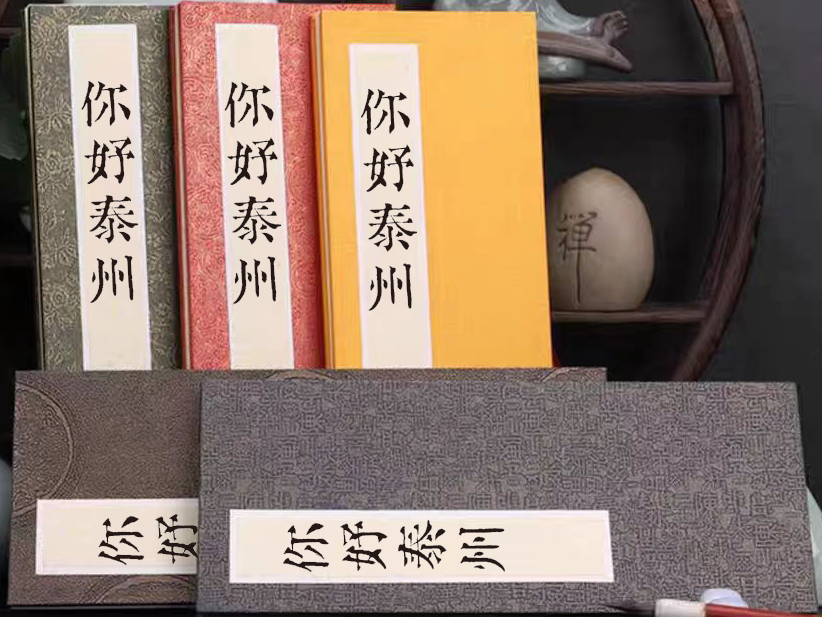 你好泰州
你好泰州
你好泰州
禅
你好
你好泰州